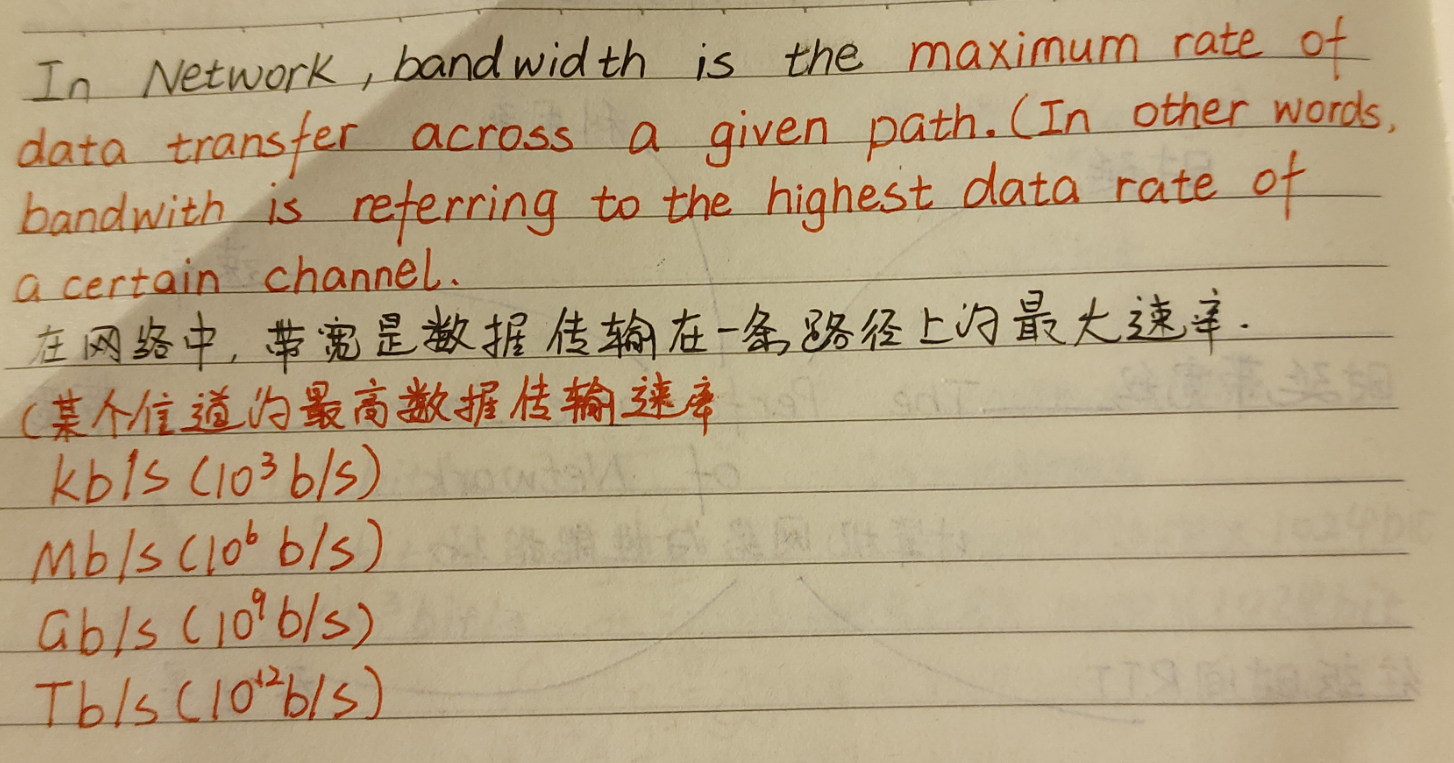 In Network, bandwidth is the maximum rate of
data transfer across a given path. (In other words,
bandwith is referring to the highest data rate of
a certain channel.
在网络中, 带宽是数据传输在一条路径上的最大速率.
(某个信道的最高数据传输速率
kb/s (10³ b/s)
Mb/s (10⁶ b/s)
Gb/s (10⁹ b/s)
Tb/s (10¹² b/s)